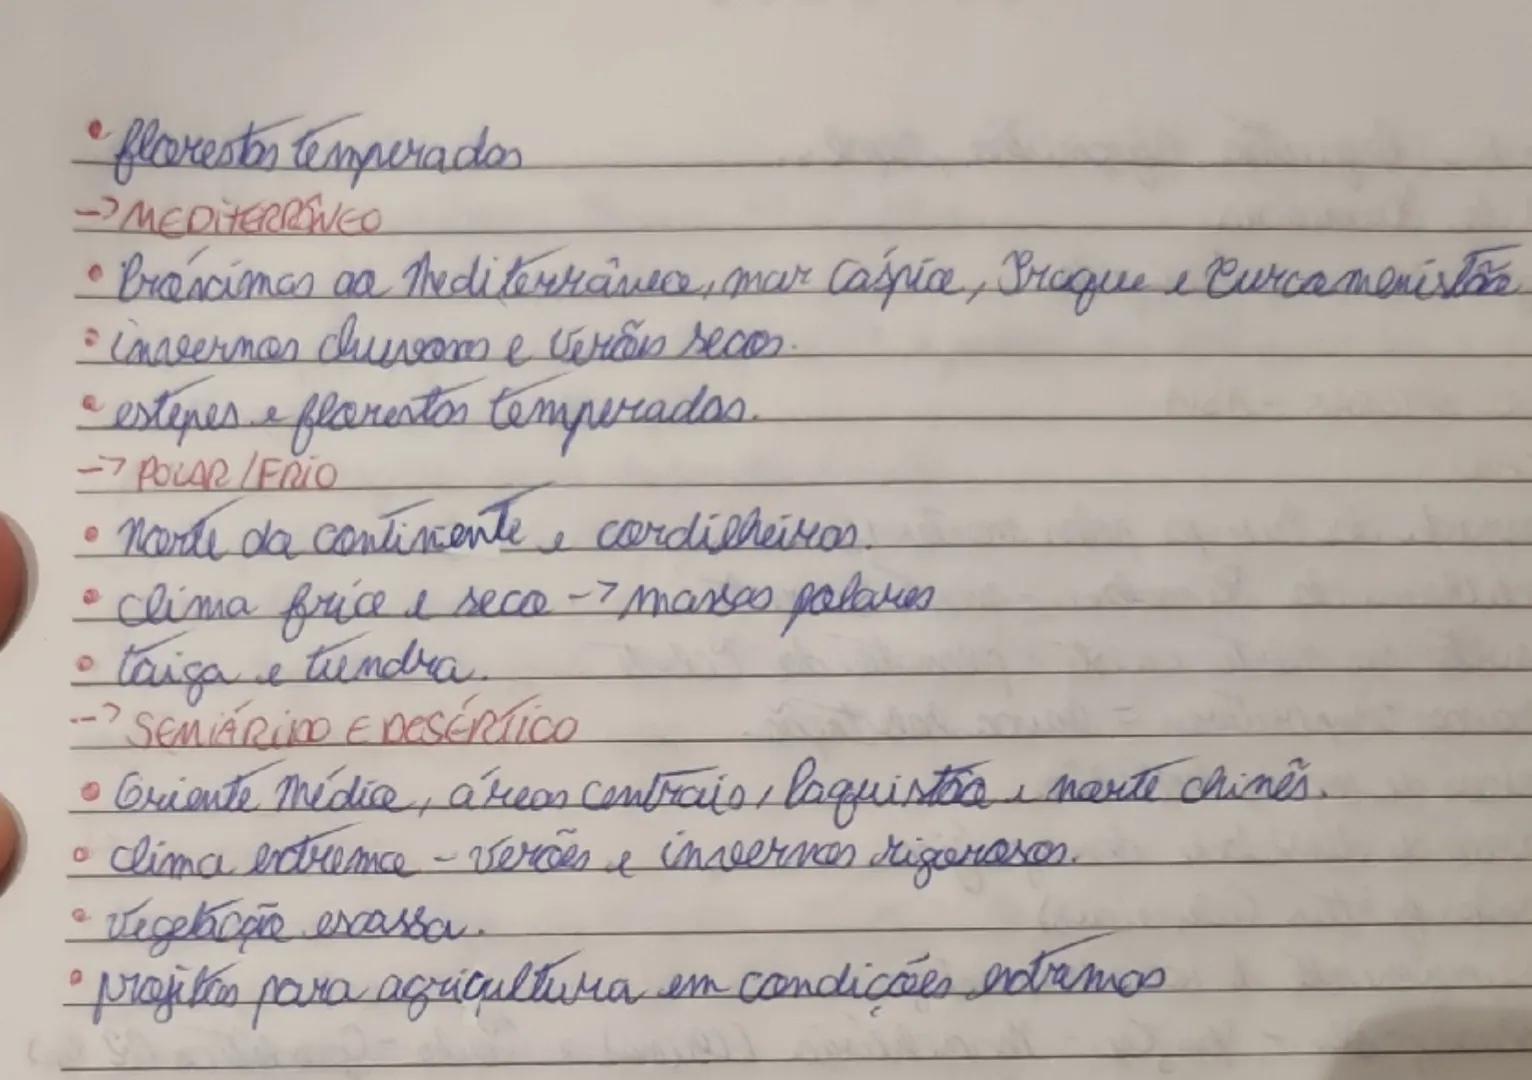 • florestas temperadas
-> MEDITERRÂNEO
• Próximas ao Mediterrâneo, mar Cáspio, Iraque e Turcomenistão
• invernos chuvosos e verões secos.
• estepes e florestas temperadas.
-> POLAR/FRIO
• Norte do continente e cordilheiras.
• clima frio e seco -> massas polares
• taiga e tundra.
-> SEMIÁRIDO E DESÉRTICO
• Oriente Médio, áreas centrais, Paquistão e norte chinês.
• clima extremo - verões e invernos rigorosos.
• vegetação escassa.
• projetos para agricultura em condições extremas